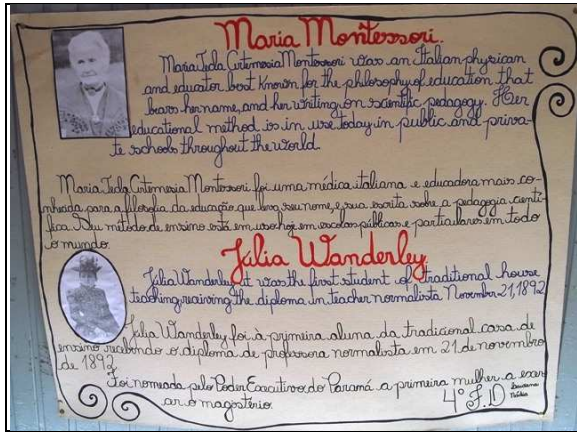 Maria Montessori.
Maria Tecla Artemesia Montessori was an Italian physican
and educator best known for the philosophy of education that
bears her name, and her writing on scientific pedagogy. Her
educational method is in use today in public and priva-
te schools throughout the world.
Maria Tecla Artemesia Montessori foi uma médica italiana e educadora mais co-
nhecida para a filosofia da educação que leva seu nome, e sua escrita sobre a pedagogia cientí-
fica Seu método de ensino está em uso hoje em escolas públicas e particulares em todo
o mundo.
Júlia Wanderley.
Júlia Wanderley it was the first student of traditional house
teaching receiving the diploma in teacher normalista November 21, 1892
Júlia Wanderley foi à primeira aluna da tradicional casa de
ensino recebendo o diploma de professora normalista em 21 de novembro
de 1892
Foi nomeada pelo Poder Executivo do Paraná a primeira mulher a exer-
ar o magistério.
4º F.D